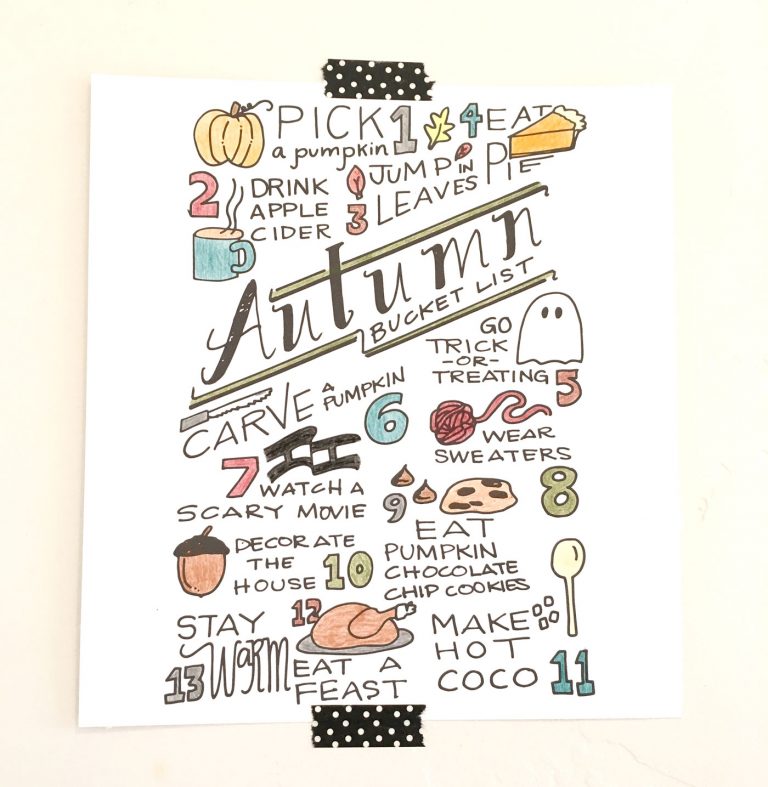 PICK 1
a pumpkin
4 EAT
PIE
2 DRINK
APPLE
CIDER
JUMP IN
3 LEAVES
Autumn
BUCKET LIST
GO
TRICK
-OR-
TREATING 5
CARVE A
PUMPKIN
6
WEAR
SWEATERS
8
7 WATCH A
SCARY MOVIE
9
EAT
PUMPKIN
CHOCOLATE
CHIP COOKIES
DECORATE
THE
HOUSE 10
MAKE
HOT
COCO 11
12
EAT A
FEAST
STAY
13 WARM